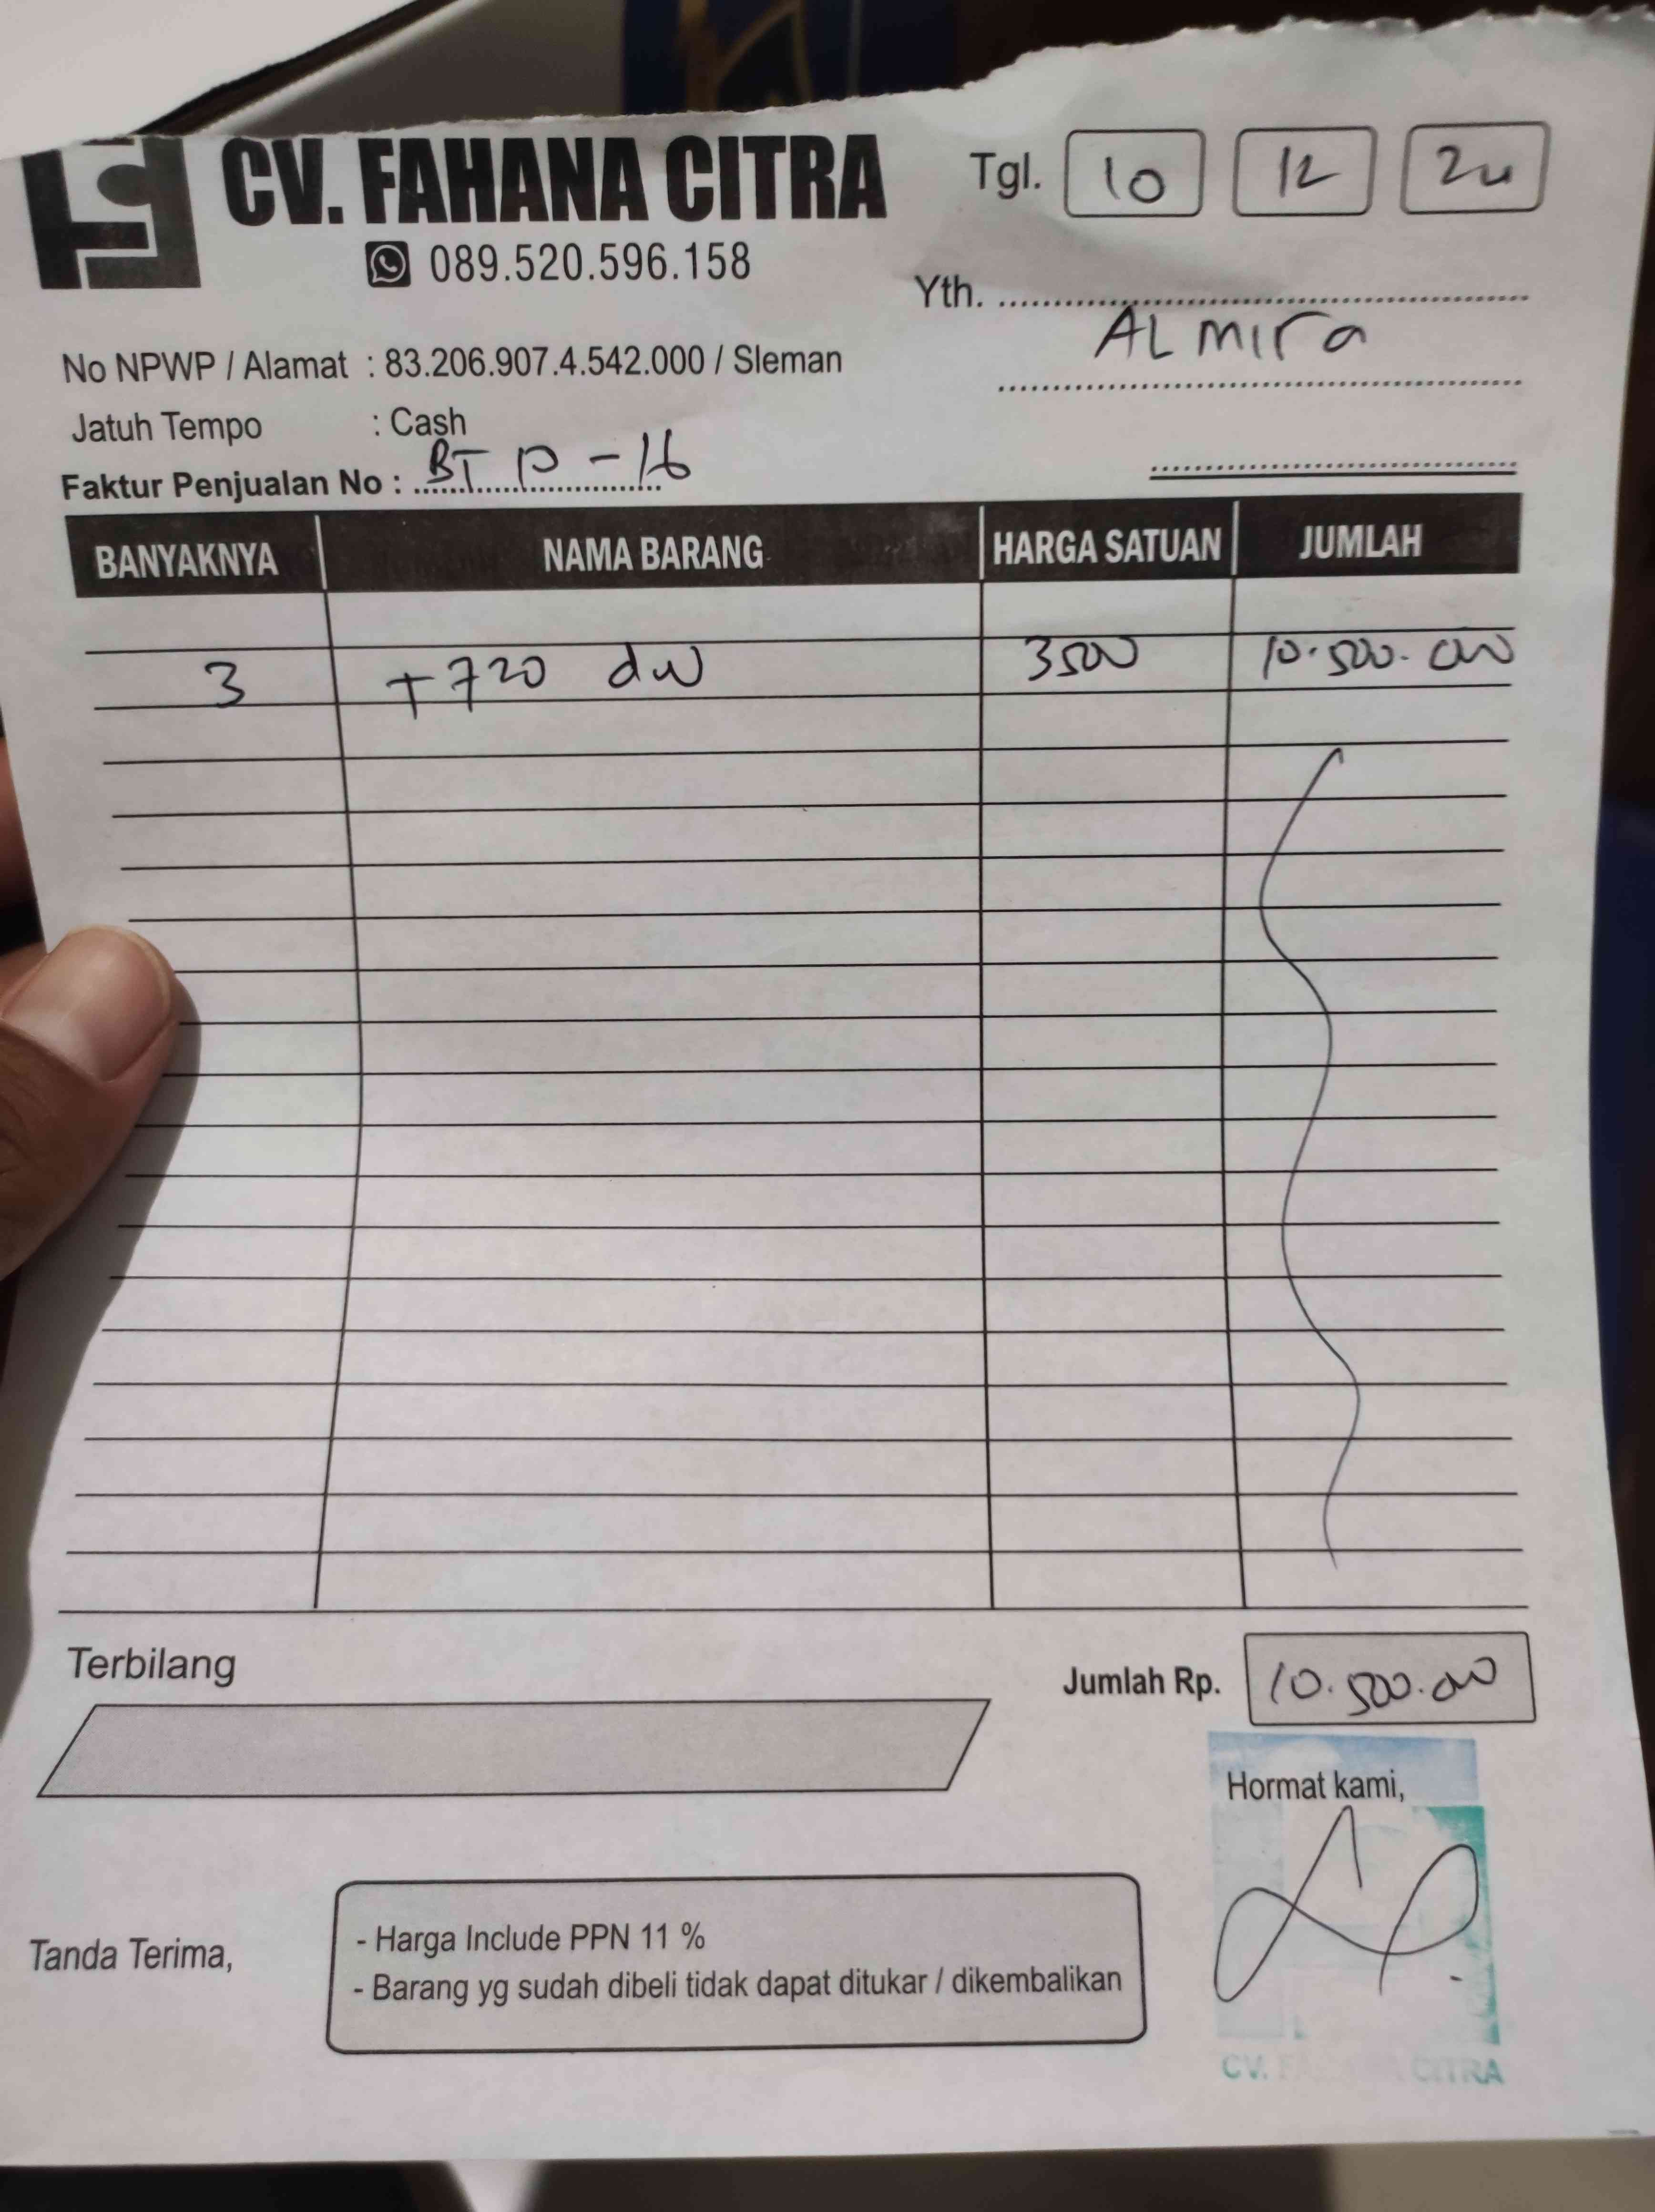 CV. FAHANA CITRA
089.520.596.158
Tgl. 10 12 24
Yth.
ALmira
No NPWP / Alamat : 83.206.907.4.542.000 / Sleman
Jatuh Tempo : Cash
Faktur Penjualan No : BT P - 16
BANYAKNYA NAMA BARANG HARGA SATUAN JUMLAH
3 T720 dw 3500 10.500.000
Terbilang
Jumlah Rp. 10.500.000
Hormat kami,
Tanda Terima,
- Harga Include PPN 11 %
- Barang yg sudah dibeli tidak dapat ditukar / dikembalikan
CV. FAHANA CITRA